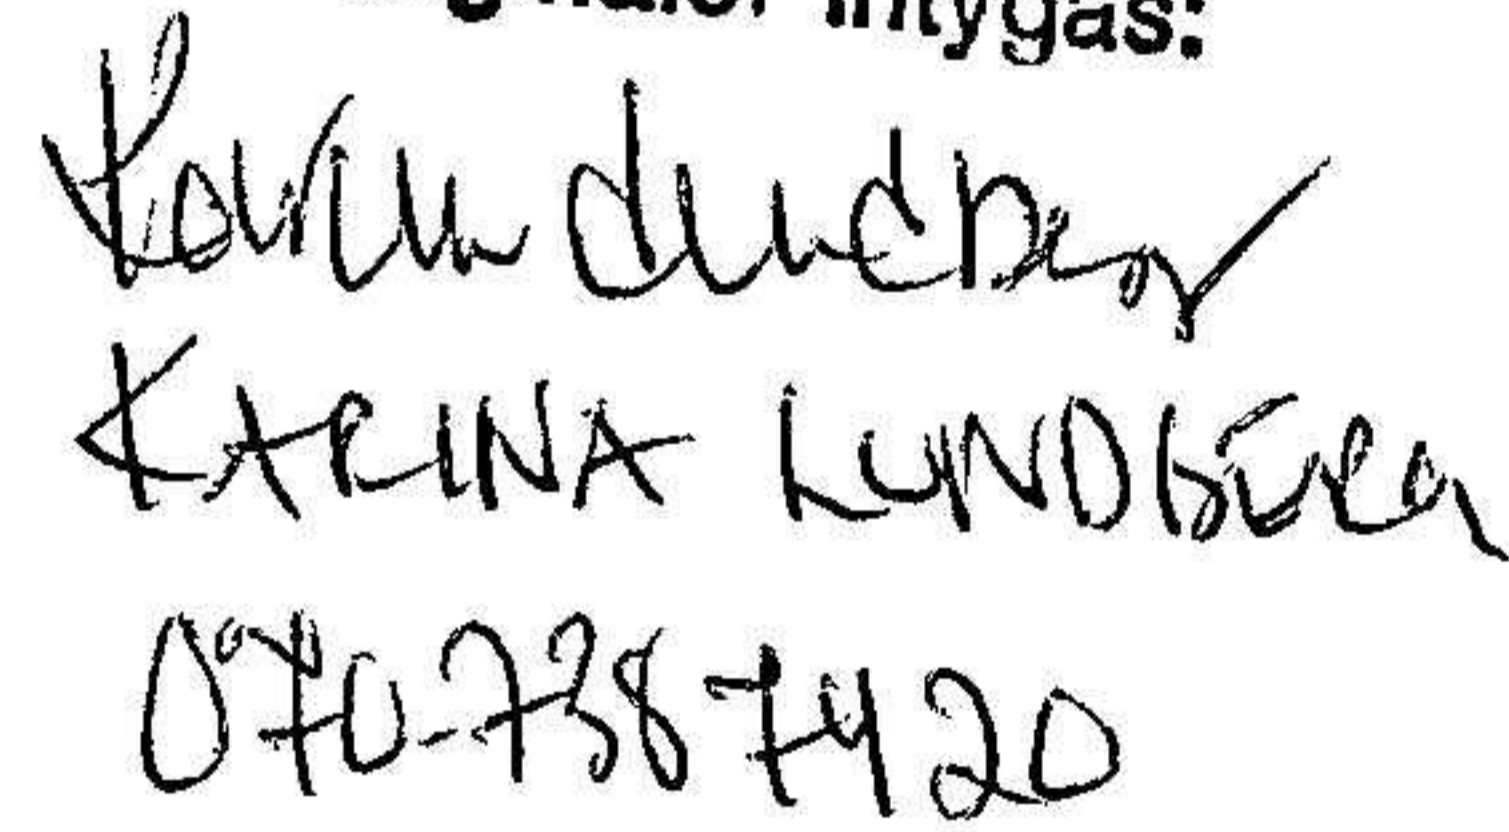 intygas:
Karina Lundberg
KARINA LUNDBERG
070-738 74 20